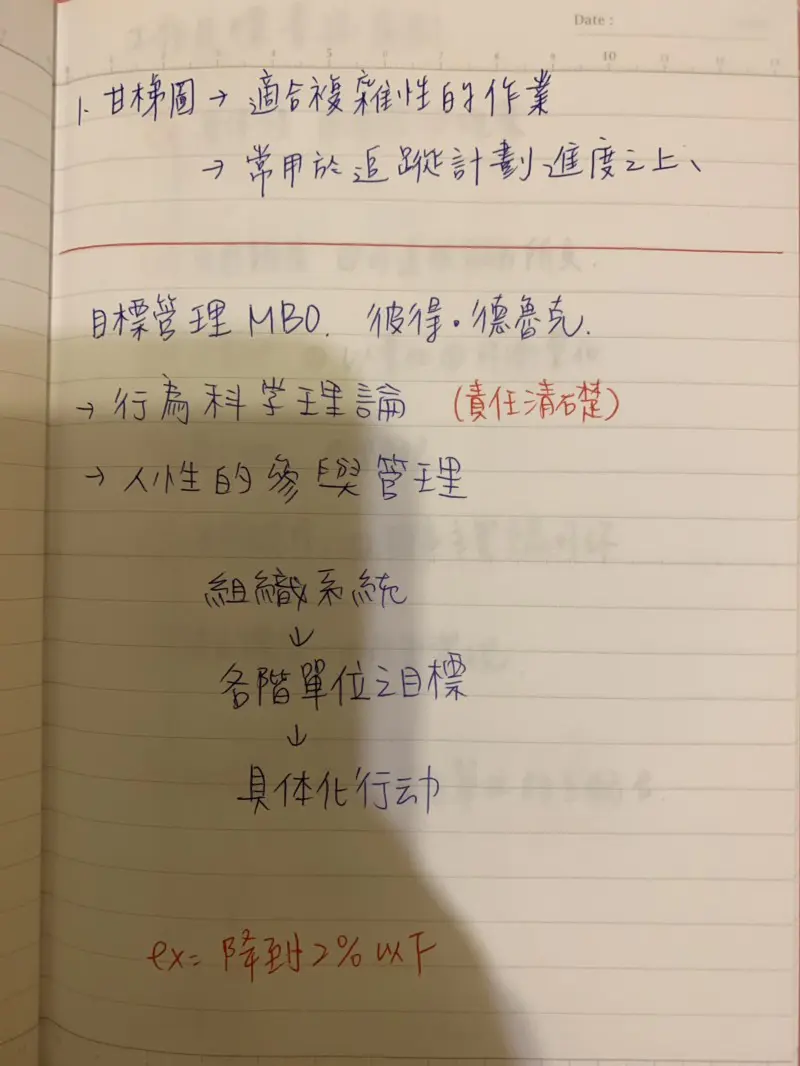 Date :
1. 甘梯圖 → 適合複雜性的作業
→ 常用於追蹤計劃進度之上、
目標管理 MBO. 彼得·德魯克.
→ 行為科學理論 (責任清楚)
→ 人性的參與管理
組織系統
↓
各階單位之目標
↓
具体化行动
ex= 降到2%以下